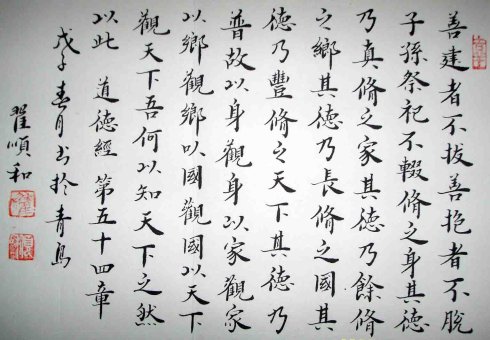 善建者不拔善抱者不脫
子孫祭祀不輟脩之身其德
乃真脩之家其德乃餘脩
之鄉其德乃長脩之國其
德乃豐脩之天下其德乃
普故以身觀身以家觀家
以鄉觀鄉以國觀國以天下
觀天下吾何以知天下之然
以此 道德經 第五十四章
戊子春月书於青島
翟順和